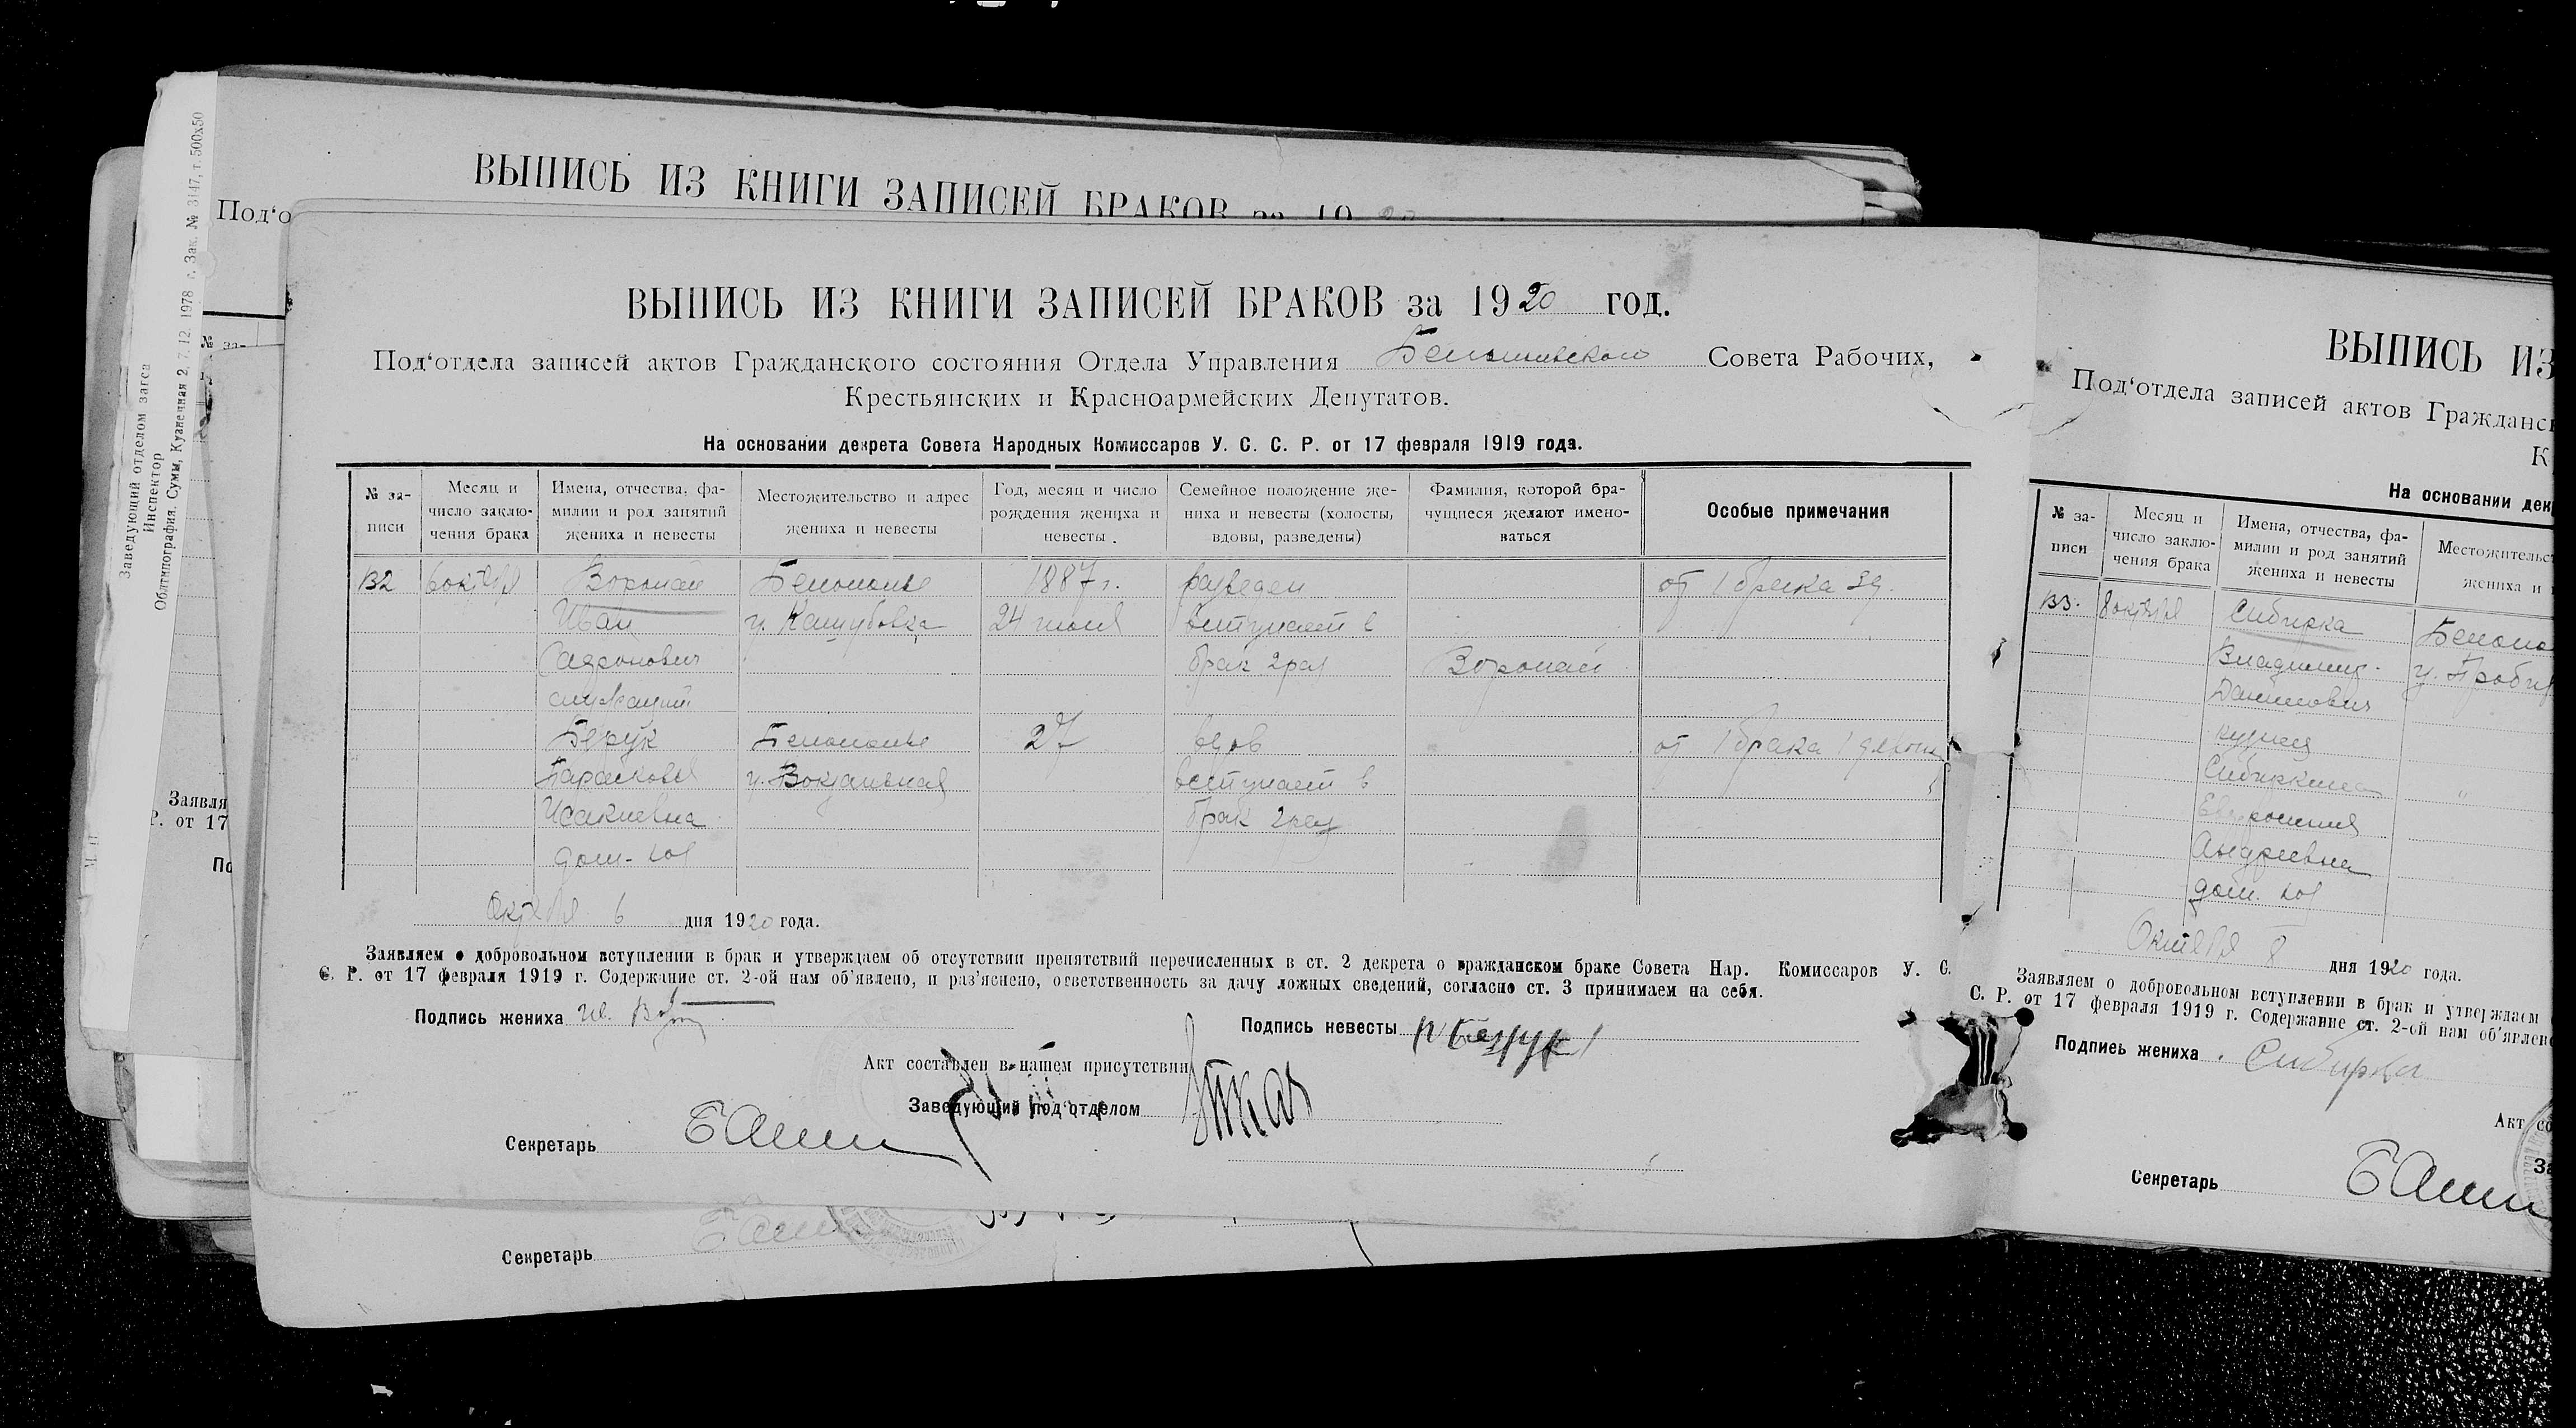 Заведующий отделом загса
Инспектор
Облтипография. Сумы, Кузнечная 2, 7. 12. 1978 г. Зак. № 3147, т. 500х50
ВЫПИСЬ ИЗ КНИГИ ЗАПИСЕЙ БРАКОВ за 19
Под‘о
№ за-
Заявля
Р. от 17
По
ВЫПИСЬ ИЗ КНИГИ ЗАПИСЕЙ БРАКОВ за 1920 год.
Под‘отдела записей актов Гражданского состояния Отдела Управления Совета Рабочих,
Крестьянских и Красноармейских Депутатов.
На основании декрета Совета Народных Комиссаров У. С. С. Р. от 17 февраля 1919 года.
№ за-
писи
Месяц и
число заклю-
чения брака
Имена, отчества, фа-
милии и род занятий
жениха и невесты
Местожительство и адрес
жениха и невесты
Год, месяц и число
рождения жениха и
невесты.
Семейное положение же-
ниха и невесты (холосты,
вдовы, разведены)
Фамилия, которой бра-
чущиеся желают имено-
ваться
Особые примечания
132 6 октября Воропай Белополье 1887 г. разведен от 1 брака
Иван 24 июля вступает в
брак 2 раз Воропай
служащий
Белополье 27 вдов от 1 брака 1
Парасковья у. Вокзальная вступает в
Исакиевна брак 2 раз
дом. хоз
Октября 6 дня 1920 года.
Заявляем о добровольном вступлении в брак и утверждаем об отсутствии препятствий перечисленных в ст. 2 декрета о гражданском браке Совета Нар. Комиссаров У. С.
С. Р. от 17 февраля 1919 г. Содержание ст. 2-ой нам об‘явлено, и раз‘яснено, ответственность за дачу ложных сведений, согласно ст. 3 принимаем на себя.
Подпись жениха Ив.
Подпись невесты
Акт составлен в нашем присутствии
Заведующий под‘отделом
Секретарь
Секретарь
ВЫПИСЬ ИЗ
Под‘отдела записей актов Гражданск
К
На основании дек
№ за-
писи
Месяц и
число заклю-
чения брака
Имена, отчества, фа-
милии и род занятий
жениха и невесты
Местожительст
жениха и
133. 8 октября Сибирка Белопо
Владимир
Данилович
кузнец
Сибиркина "
Андреевна
дом. хоз
Октября 8 дня 1920 года.
Заявляем о добровольном вступлении в брак и утверждаем
С. Р. от 17 февраля 1919 г. Содержание ст. 2-ой нам об‘явлен
Подпись жениха Сибирка
Акт со
За
Секретарь